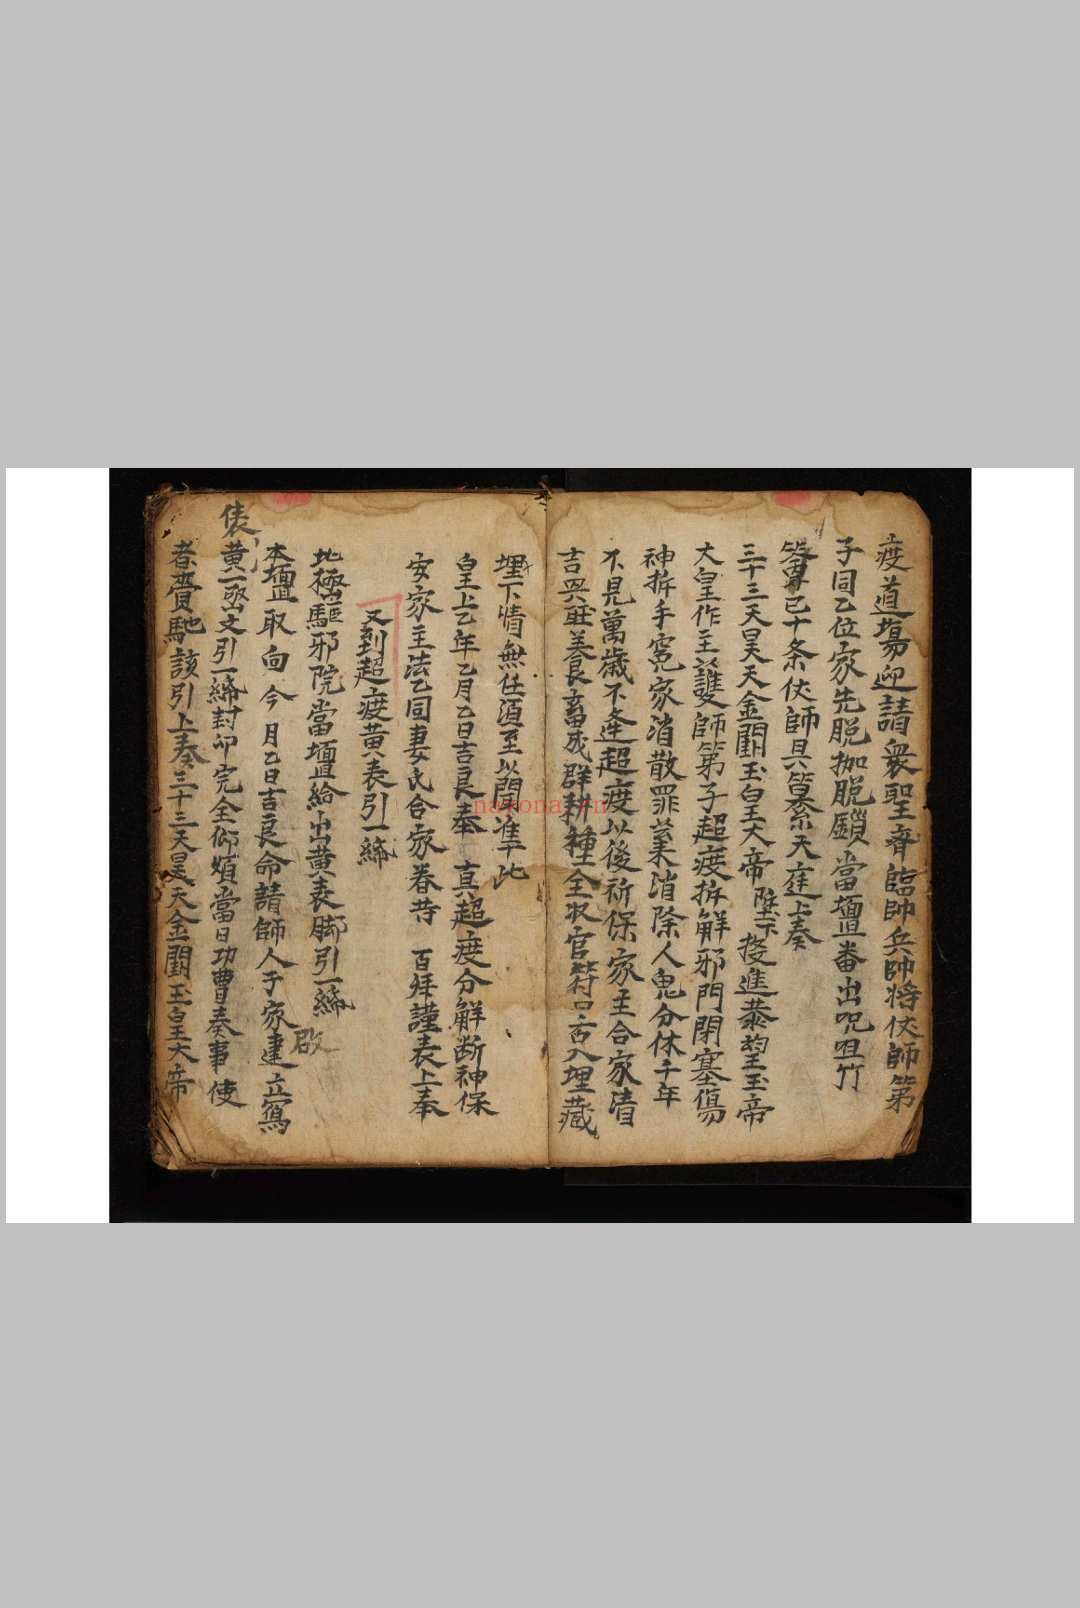 疫道場迎請衆聖齊臨帥兵帥將伏師第
子同乙位家先脫枷脫鎖當壇番出咒咀竹
已十条伏師具 天庭上奏
三十三天昊天金闕玉皇大帝陛下投進恭望玉帝
大皇作主護師第子超疫拆解邪門閉塞傷
神拆手寃家消散罪業消除人鬼分休千年
不見萬歲不逢超疫以後祈保家主合家清
吉興旺養良畜成群耕種全收官符口舌入埋藏
埋下情無任湏至以聞準此
皇上乙年乙月乙日吉良奉 真超疫分解断神保
安家主法乙同妻氏合家眷等 百拜謹表上奉
又到超疫黄表引一締
地極驅邪院當壇給出黄表脚引一締
本壇取向今月乙日吉良命請師人于家建立寫 啟
俵黄一 文引一締封印完全仰煩當日功曹奏事使
者賫馳該引上奏三十三天昊天金闕玉皇大帝
navona.cn